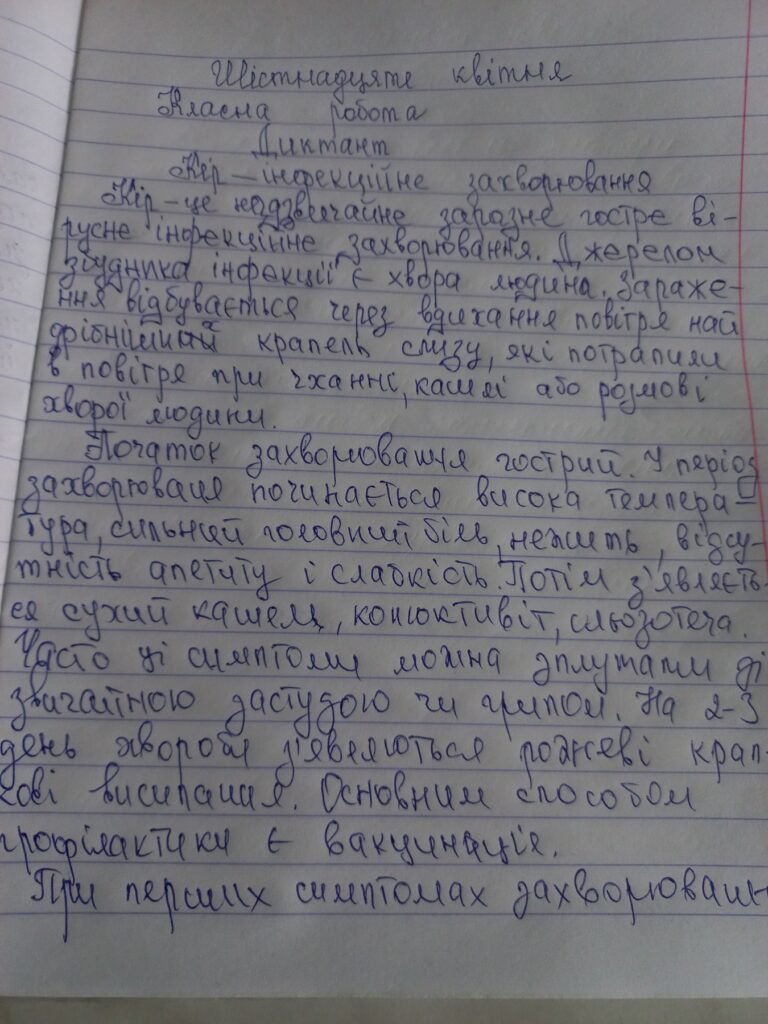 Шістнадцяте квітня
Класна робота
Диктант
Кір – інфекційне захворювання
Кір – це надзвичайне заразне гостре ві-
русне інфекційне захворювання. Джерелом
збудника інфекції є хвора людина. Зараже-
ння відбувається через вдихання повітря най
дрібніших крапель слизу, які потрапили
в повітря при чханні, кашлі або розмові
хворої людини.
Початок захворювання гострий. У період
захворювання починається висока темпера-
тура, сильний головний біль, нежить, відсу-
тність апетиту і слабкість. Потім з'являєть-
ся сухий кашель, конюктивіт, сльозотеча.
Часто ці симптоми можна зплутати зі
звичайною застудою чи грипом. На 2-3
день хвороби з'являються рожеві крап-
кові висипання. Основним способом
профілактики є вакцинація.
При перших симптомах захворюван